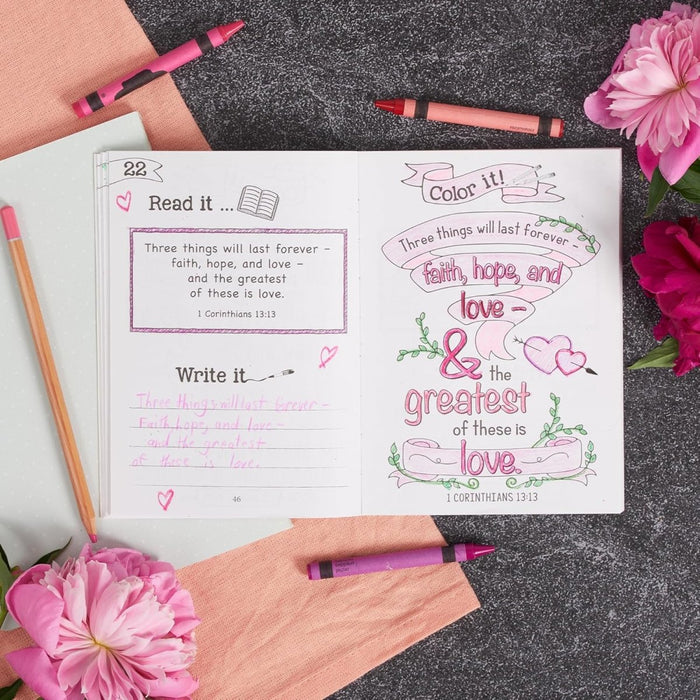 22
Read it ...
Three things will last forever –
faith, hope, and love –
and the greatest
of these is love.
1 Corinthians 13:13
Write it
Three things will last forever –
Faith, hope, and love –
and the greatest
of these is love.
46
Color it!
Three things will last forever –
faith, hope, and
love –
& the
greatest
of these is
love.
1 CORINTHIANS 13:13